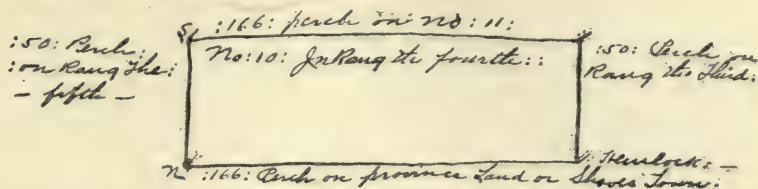 S :166: perch on no: 11:
:50: Perch:
:on Rang The:
- fifth -
No:10: In Rang the fourth::
:50: Perch on
Rang the Third:
Hemlock: -
N :166: Perch on province Land or Town: